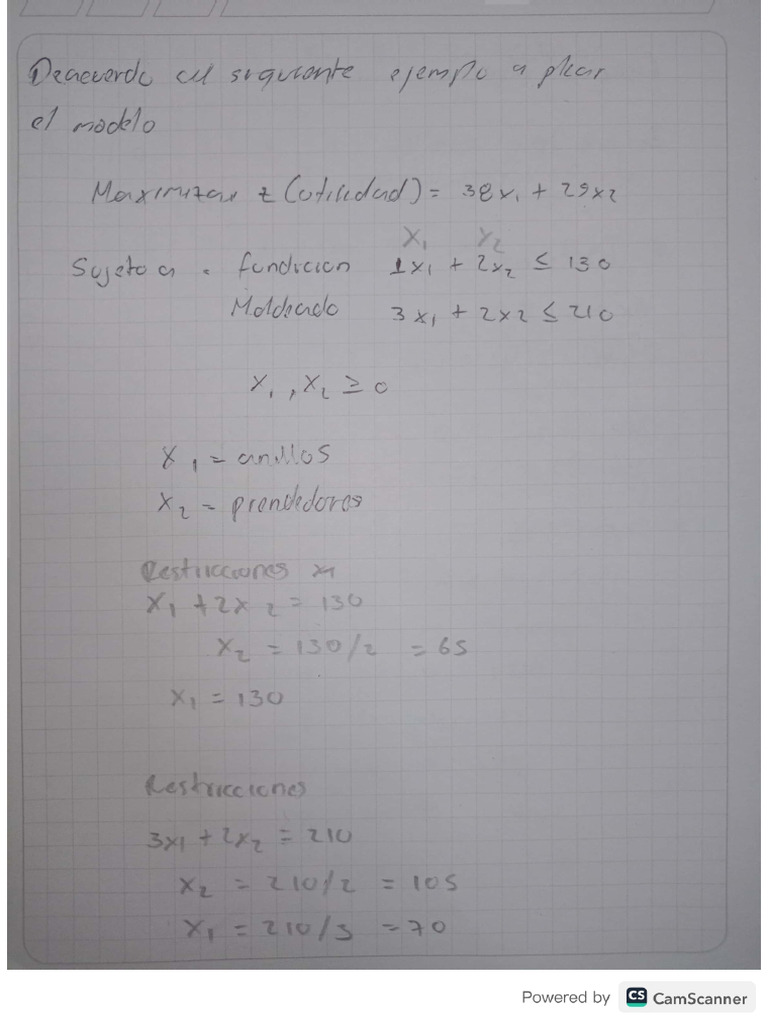 Deacuerdo al siguiente ejemplo aplicar
el modelo
Maximizar z (utilidad) = 38x₁ + 29x2
x₁ x₂
Sujeto a . fundicion 1x₁ + 2x₂ ≤ 130
Moldeado 3x₁ + 2x2 ≤ 210
x₁, x₂ ≥ 0
x₁ = anillos
x₂ = prendedores
Restricciones x1
x₁ + 2x₂ = 130
x₂ = 130/2 = 65
x₁ = 130
Restricciones
3x₁ + 2x₂ = 210
x₂ = 210/2 = 105
x₁ = 210/3 = 70
Powered by CS CamScanner